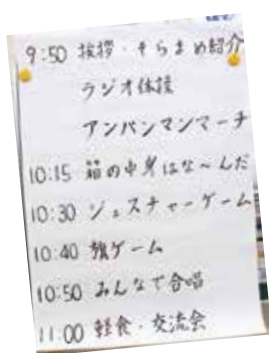 9:50 挨拶・そらまめ紹介
ラジオ体操
アンパンマンマーチ
10:15 箱の中身はな〜んだ
10:30 ジェスチャーゲーム
10:40 旗ゲーム
10:50 みんなで合唱
11:00 軽食・交流会